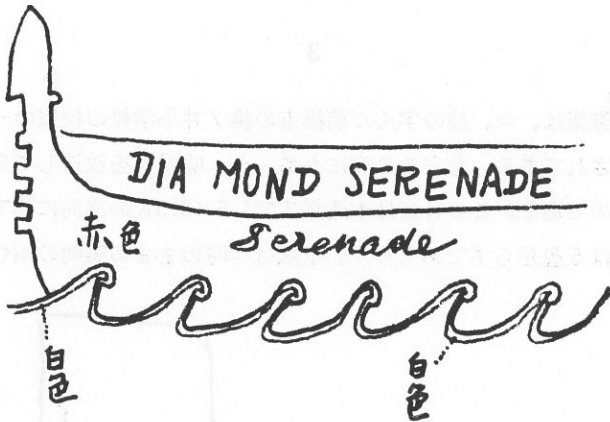 DIA MOND SERENADE
赤色
Serenade
白色
白色